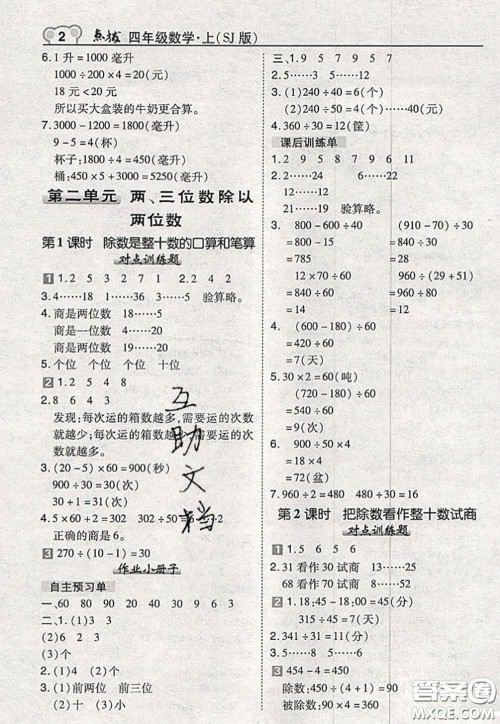 2 点拨 四年级数学·上(SJ版)
6. 1升=1000毫升
1000÷200×4=20(元)
18元<20元
所以买大盒装的牛奶更合算。
7. 3000-1200=1800(毫升)
9-5=4(杯)
杯子:1800÷4=450(毫升)
桶:450×5+3000=5250(毫升)
第二单元 两、三位数除以
两位数
第1课时 除数是整十数的口算和笔算
对点训练题
1 1. 2 5 3 2 7 1 2. 2 4 2
3. 4……18 1……4 3……5 验算略。
4. 商是两位数 18……5
商是一位数 4……20
商是两位数 19……20
5. 个位 个位 个位 十位
2 1. 2 5 4 8
2. 8 6 4 3
发现:每次运的箱数越多,需要运的次数
就越少;每次运的箱数越少,需要运的次
数就越多。
3. (20-5)×60=900(秒)
900÷30=30(次)
30+1=31(次)
4. 5×60+2=302 302÷50=6……2
正确的商是6。
3 270÷(10-1)=30
作业小册子
自主预习单
一、60 80 90 20 40 40 60 30
二、1. (1)3 (2)3 2 3
(2)6 2
2. (1)4 (2)3 3. (1)个
(2)十 (3)个
4. (1)前两位 前三位 (2)小
三、1. 2 9 5 7
2. 5……5 5……34
3. (1)240÷40=6(个)
(2)240÷60=4(个)
4. 360÷30=12(筐)
课后训练单
1. 2 9 5 8 7 9 6 11
2. 3 40 30
3. 21……6 4……30 6……40
22……10 4……17
17……4 21 验算略。
4. 800-600÷40 (910-70)÷70
=800-15 =840÷70
=785 =12
12×70÷40 960÷(29+51)
=840÷40 =960÷80
=21 =12
4. (600-180)÷60
=420÷60
=7(天)
5. 30×2=60(吨)
(600-60)÷60
=540÷60
=9(次)
6. 900÷50×4
=18×4
=72(盆)
7. 960÷2=480 480÷40=12
第2课时 把除数看作整十数试商
对点训练题
1 1. 5 6 5 8
2. 31看作30试商 13……17
68看作70试商 8……52
2 1. 315÷21×3=45(分)
315÷45=7(分)
2. 341÷31=11 3. 7……58
4. 5……5
3 454-4=450
除数:450÷(4+1)=90
被除数:90×4=360
互助文档
答案圈
MXQE.COM